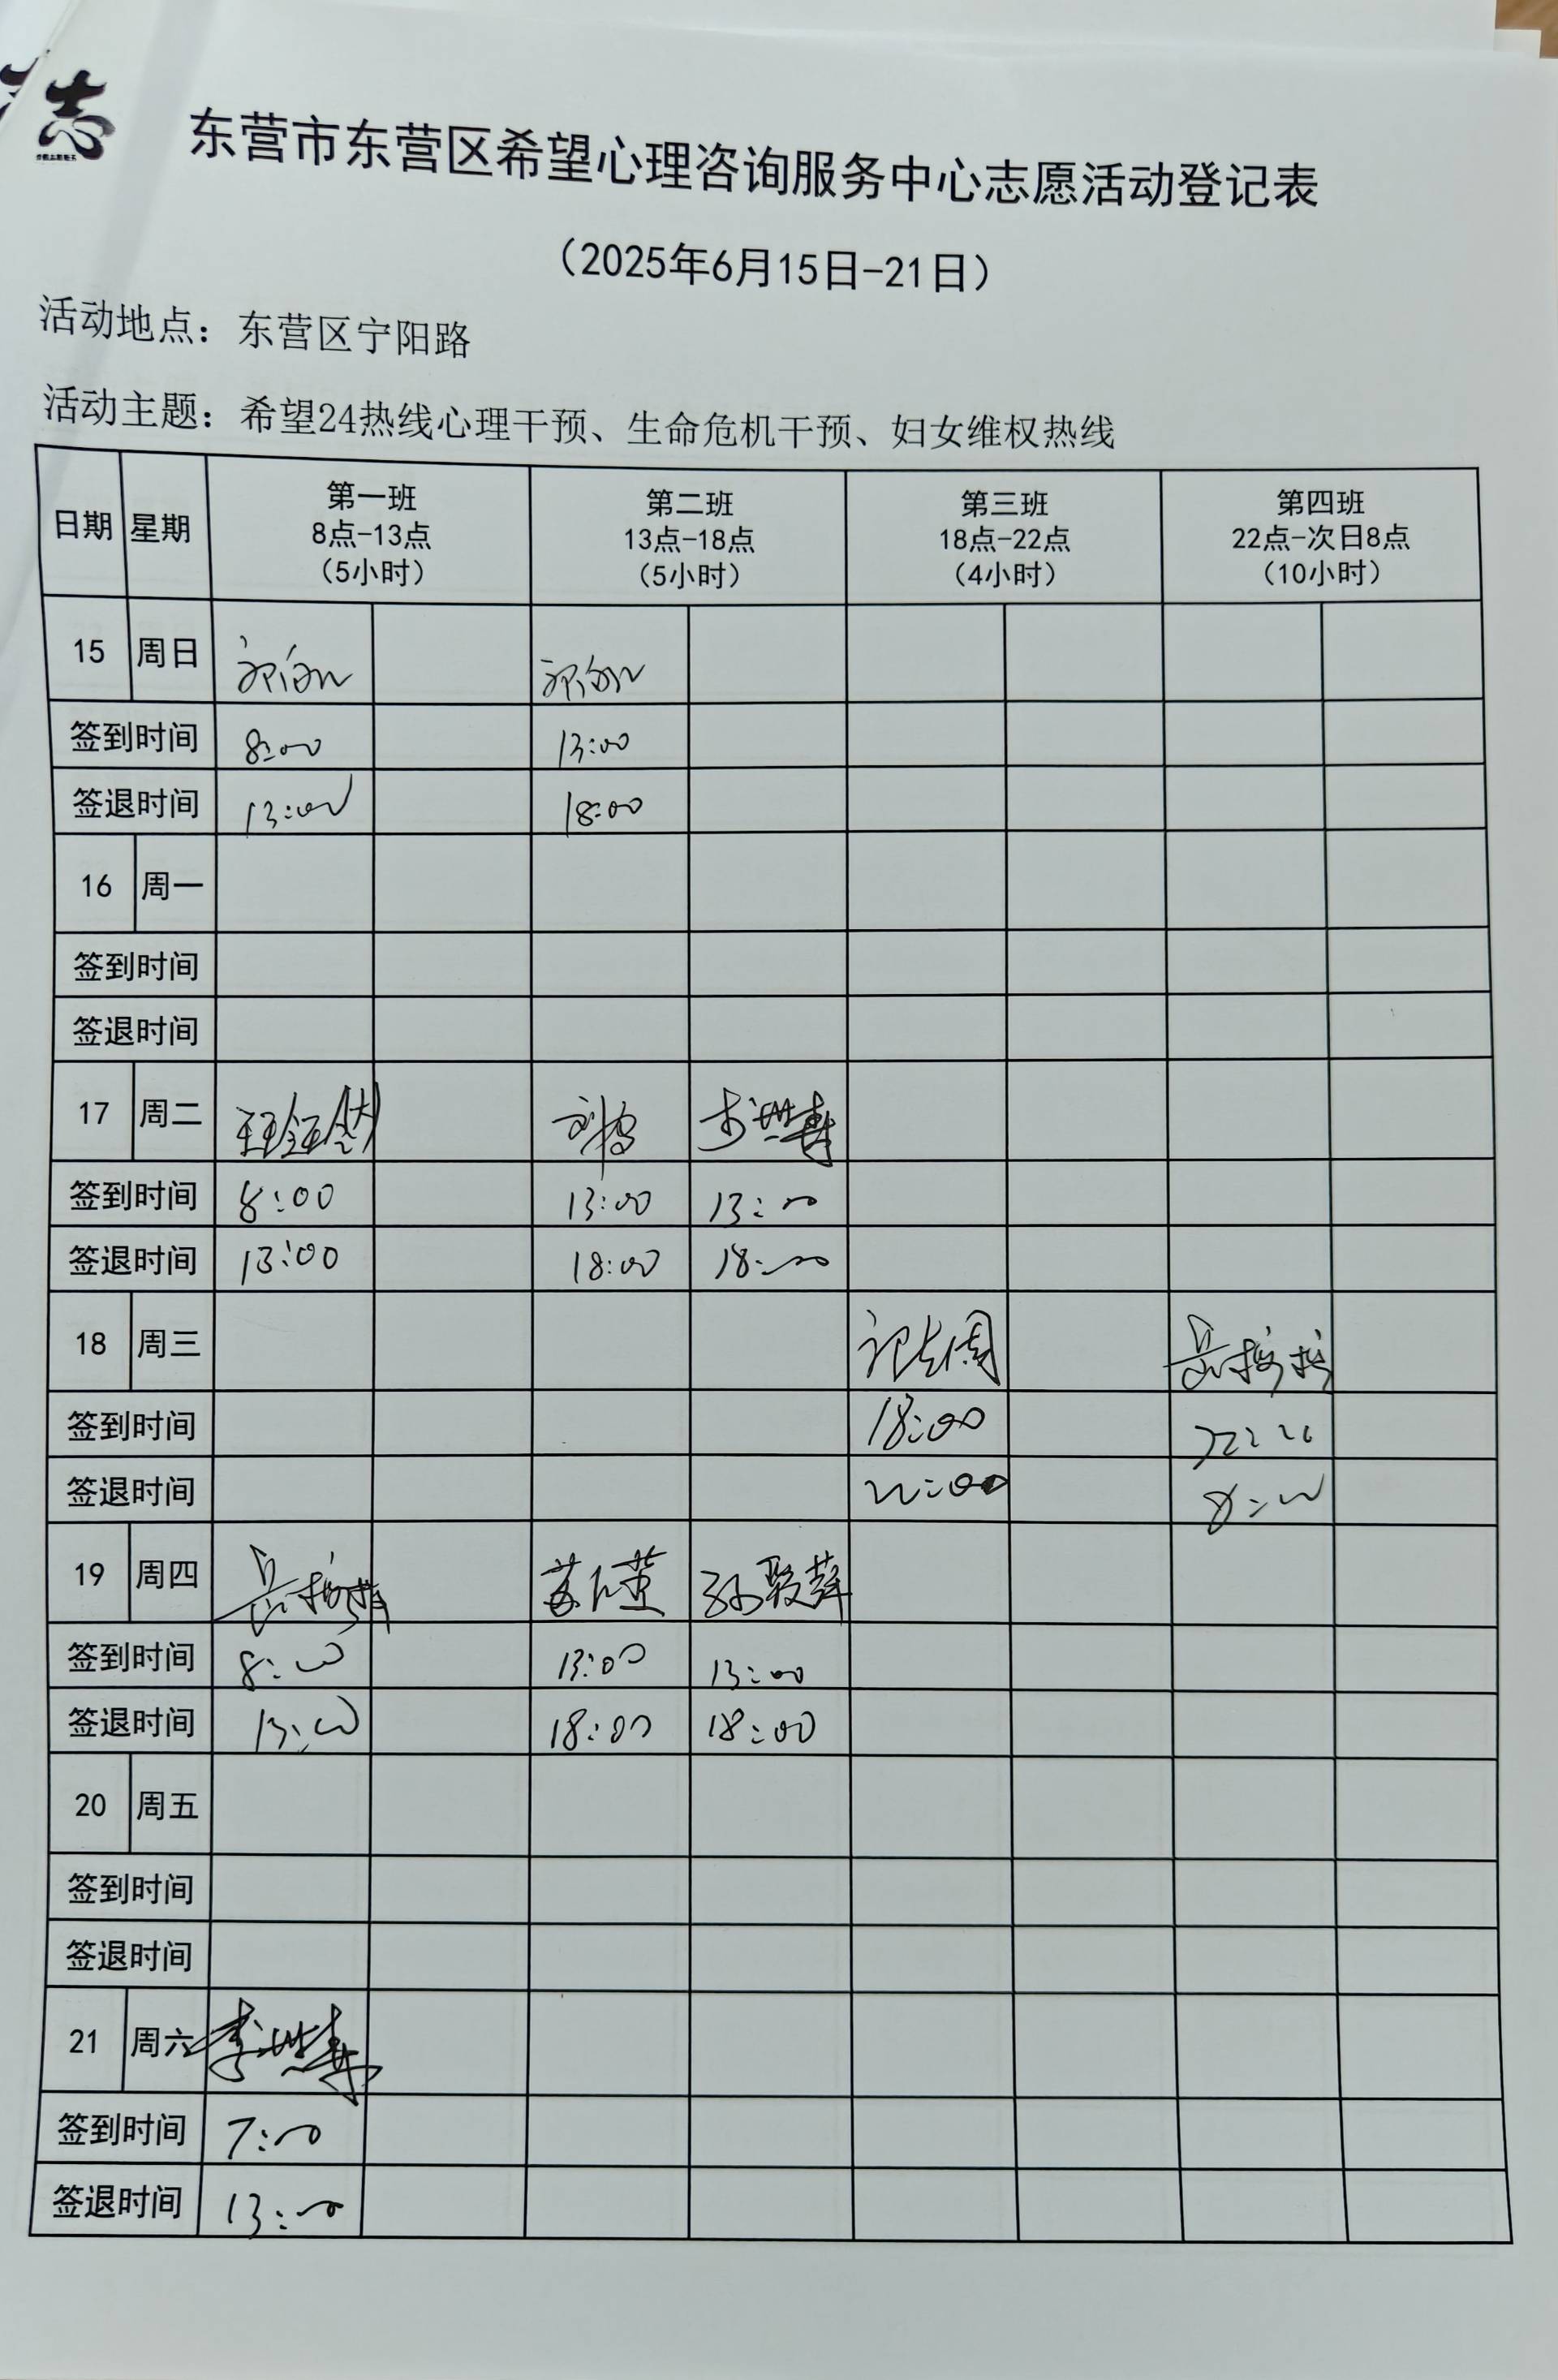 志
东营市东营区希望心理咨询服务中心志愿活动登记表
（2025年6月15日-21日）
活动地点：东营区宁阳路
活动主题：希望24热线心理干预、生命危机干预、妇女维权热线
日期 星期 第一班 8点-13点 （5小时） 第二班 13点-18点 （5小时） 第三班 18点-22点 （4小时） 第四班 22点-次日8点 （10小时）
15 周日
签到时间 8:00 13:00
签退时间 13:00 18:00
16 周一
签到时间
签退时间
17 周二
签到时间 8:00 13:00 13:00
签退时间 13:00 18:00 18:00
18 周三
签到时间 18:00
签退时间 22:00 8:00
19 周四
签到时间 8:00 13:00 13:00
签退时间 13:00 18:00 18:00
20 周五
签到时间
签退时间
21 周六
签到时间 7:00
签退时间 13:00